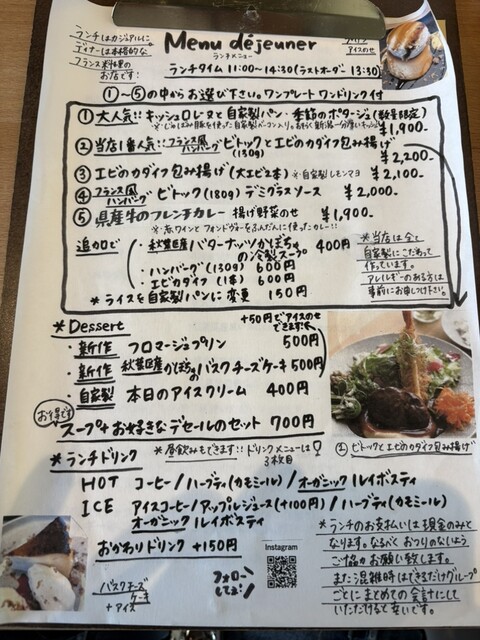 ランチはカジュアルに
ディナーは本格的な
フランス料理の
お店です!
Menu déjeuner
ランチメニュー
アイスのせ
ランチタイム 11:00〜14:30(ラストオーダー 13:30)
①〜⑤の中からお選び下さい。ワンプレート ワンドリンク付
①大人気!! キッシュロレーヌと自家製パン・季節のポタージュ(数量限定)
¥1,900-
②当店1番人気!! フランス風ハンバーグ ビトックとエビのカダイフ包み揚げ
(130g)
¥2,200-
③エビのカダイフ包み揚げ(大エビ2本) ※自家製レモンマヨ ¥2,100-
④フランス風ハンバーグ ビトック(180g)デミグラスソース ¥2,000-
⑤県産牛のフレンチカレー 揚げ野菜のせ ¥1,900-
※赤ワインとフォンドヴォーをふんだんに使ったカレー!!
追加で
・秋葉区産バターナッツかぼちゃの冷製スープ 400円
・ハンバーグ(130g) 600円
・エビカダイフ(1本) 600円
*ライスを自家製パンに変更 150円
*当店は全て
自家製にこだわって
作っています。
アレルギーのある方は
事前にお申しつけ下さい。
*Dessert
+50円でアイスのせできます
・新作 フロマージュプリン 500円
・新作 秋葉区産かぼちゃのバスクチーズケーキ 500円
・自家製 本日のアイスクリーム 400円
お得です
スープ+お好きなデセールのセット 700円
②ビトックとエビのカダイフ包み揚げ
*ランチドリンク
*昼飲みもできます!! ドリンクメニューは
3枚目
HOT コーヒー/ハーブティ(カモミール)/オーガニックルイボスティ
ICE アイスコーヒー/アップルジュース(+100円)/ハーブティ(カモミール)
オーガニックルイボスティ
おかわりドリンク +150円
Instagram
フォローしてね!
バスクチーズ
ケーキ
+アイス
*ランチのお支払いは現金のみと
なります。なるべくおつりのないよう
ご協力お願い致します。
また混雑時はできるだけグループ
ごとにまとめての会計にして
いただけると幸いです。